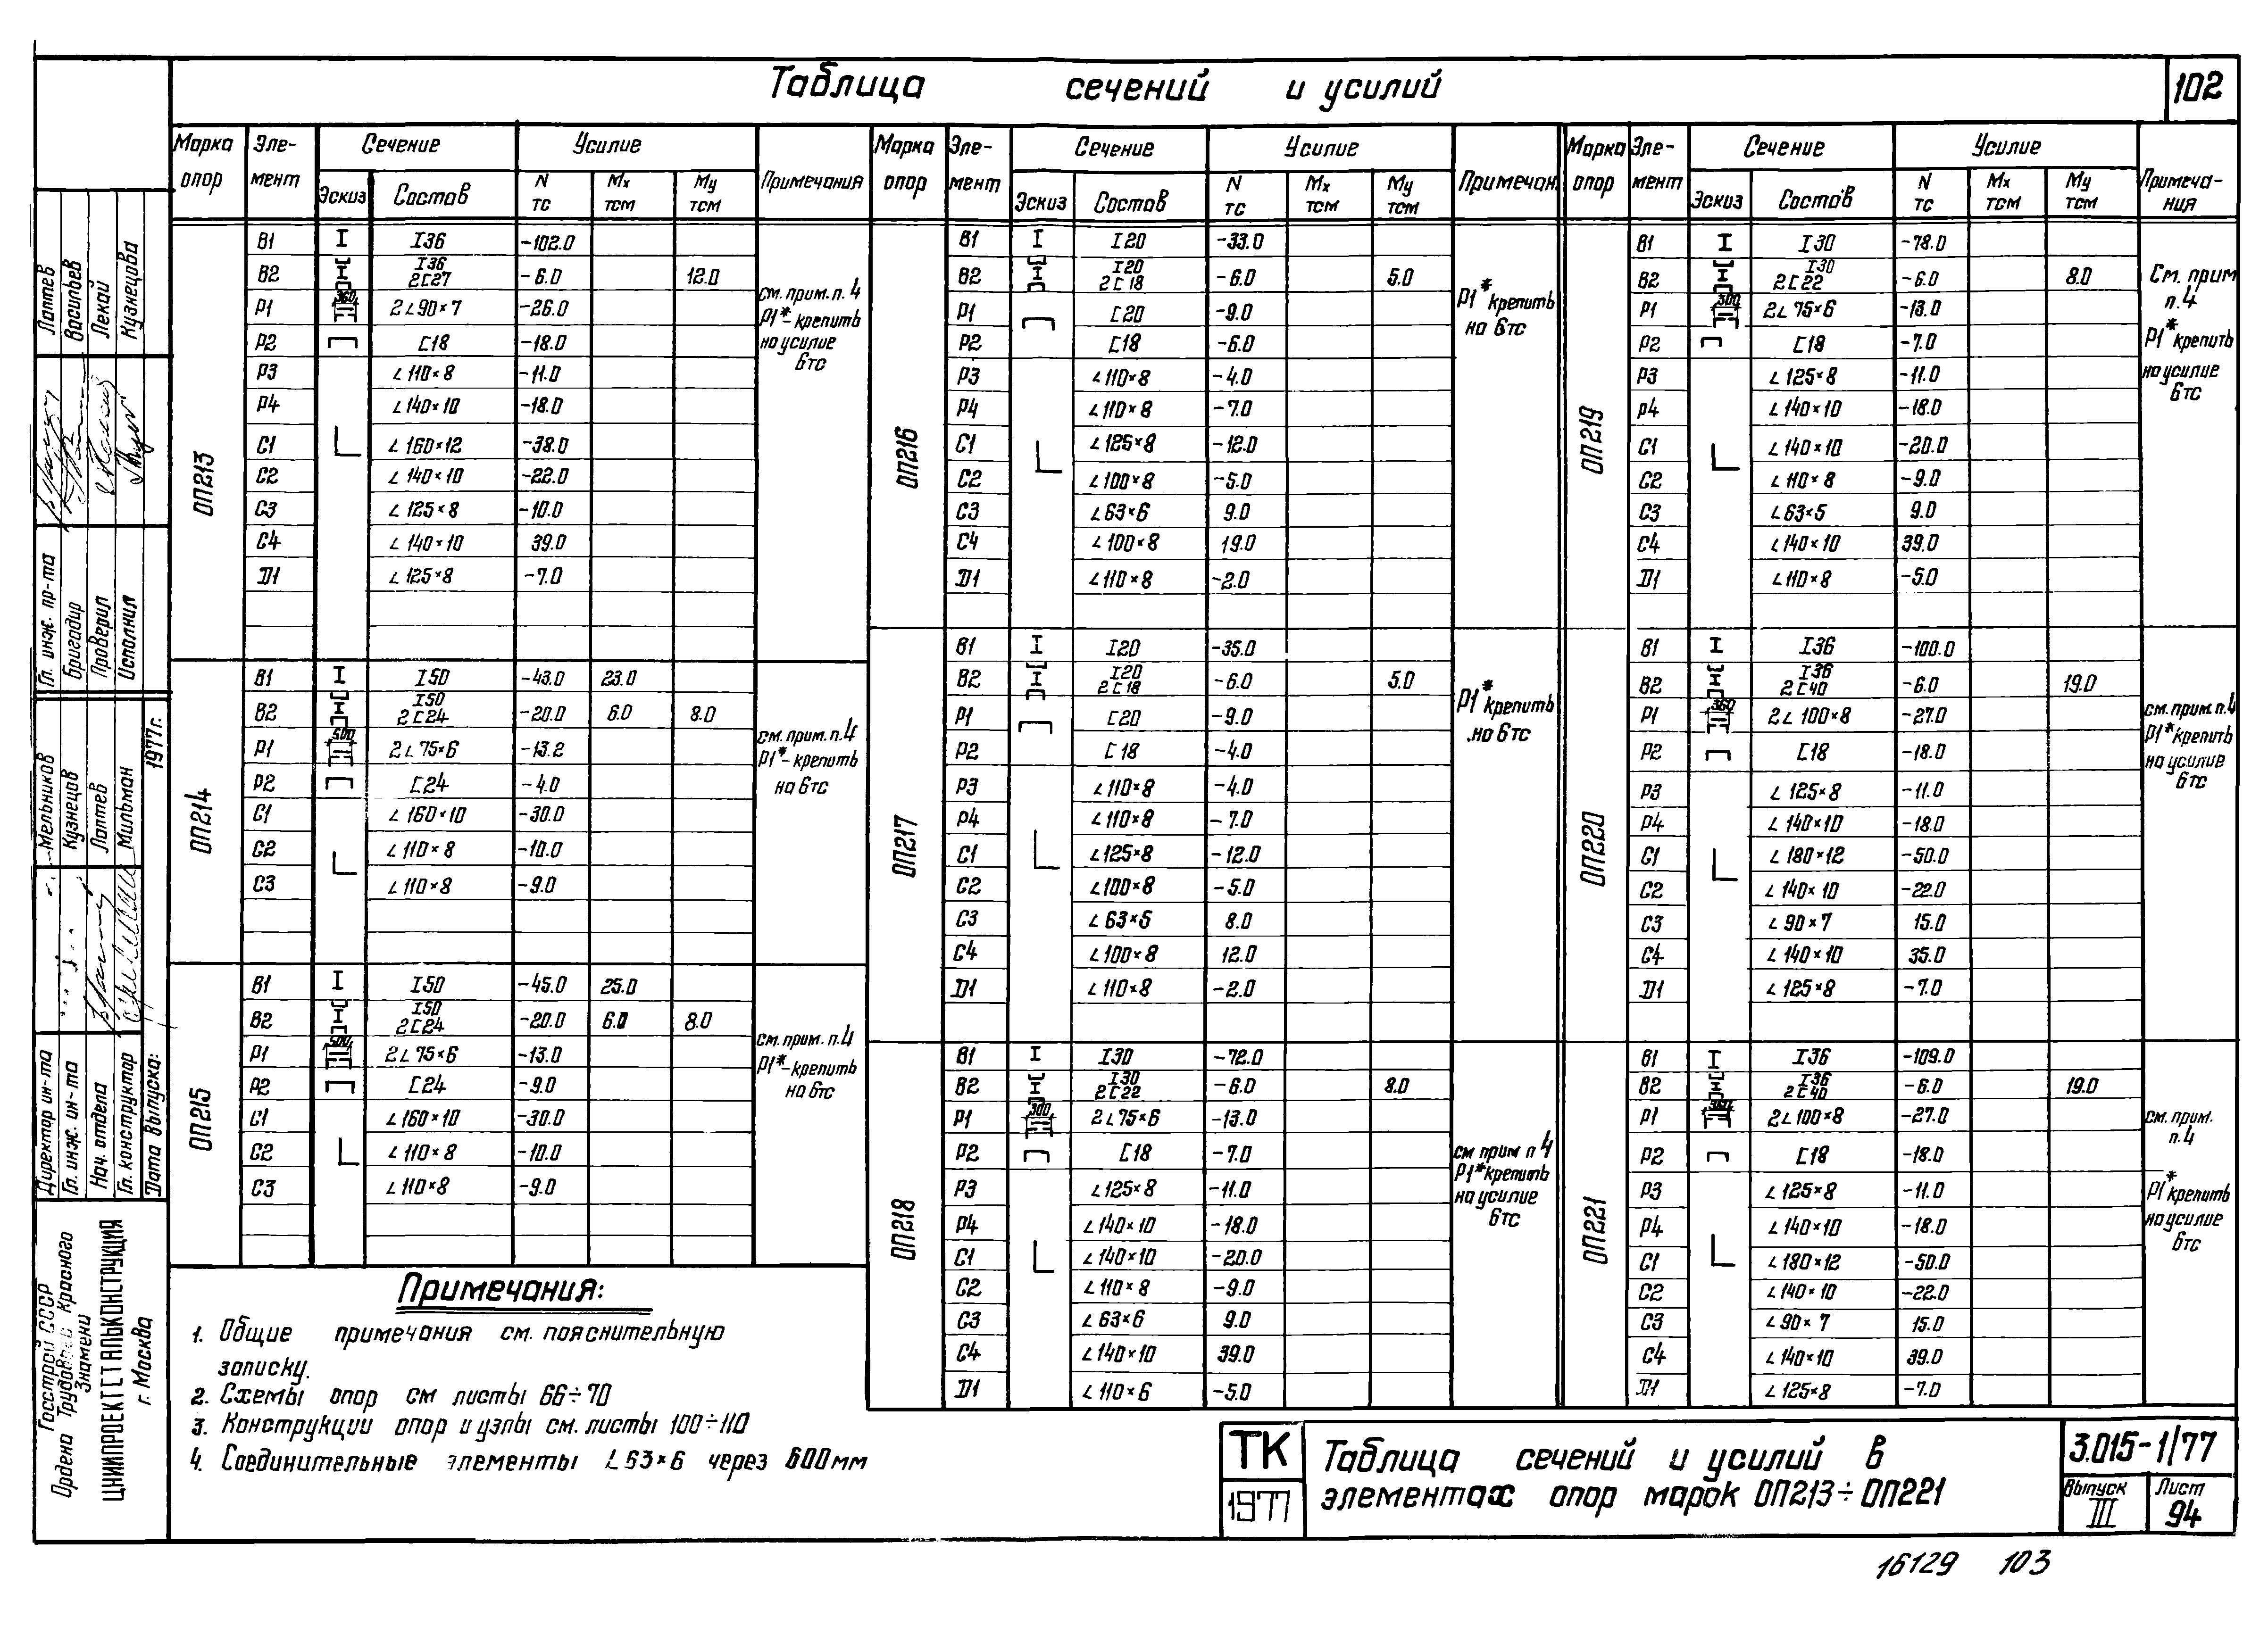 Таблица сечений и усилий
102
Марка опор Эле-мент Сечение Усилие Примечания
Эскиз Состав N тс Mx тсм My тсм
ОП213
В1 I36 -102.0
В2 I36 2[27 -6.0 12.0
Р1 360 2∠90×7 -26.0
Р2 [18 -18.0
Р3 ∠110×8 -11.0
Р4 ∠140×10 -18.0
С1 ∠160×12 -38.0
С2 ∠140×10 -22.0
С3 ∠125×8 -10.0
С4 ∠140×10 39.0
D1 ∠125×8 -7.0
см. прим. п. 4
Р1*-крепить
на усилие
6тс
ОП214
В1 I50 -43.0 23.0
В2 I50 2[24 -20.0 6.0 8.0
Р1 500 2∠75×6 -13.2
Р2 [24 -4.0
С1 ∠160×10 -30.0
С2 ∠110×8 -10.0
С3 ∠110×8 -9.0
см. прим. п.4
Р1*-крепить
на 6тс
ОП215
В1 I50 -45.0 25.0
В2 I50 2[24 -20.0 6.0 8.0
Р1 500 2∠75×6 -13.0
Р2 [24 -9.0
С1 ∠160×10 -30.0
С2 ∠110×8 -10.0
С3 ∠110×8 -9.0
см. прим. п.4
Р1*-крепить
на 6тс
Марка опор Эле-мент Сечение Усилие Примечан.
Эскиз Состав N тс Mx тсм My тсм
ОП216
В1 I20 -33.0
В2 I20 2[18 -6.0 5.0
Р1 [20 -9.0
Р2 [18 -6.0
Р3 ∠110×8 -4.0
Р4 ∠110×8 -7.0
С1 ∠125×8 -12.0
С2 ∠100×8 -5.0
С3 ∠63×6 9.0
С4 ∠100×8 19.0
D1 ∠110×8 -2.0
Р1* крепить
на 6тс
ОП217
В1 I20 -35.0
В2 I20 2[18 -6.0 5.0
Р1 [20 -9.0
Р2 [18 -4.0
Р3 ∠110×8 -4.0
Р4 ∠110×8 -7.0
С1 ∠125×8 -12.0
С2 ∠100×8 -5.0
С3 ∠63×5 8.0
С4 ∠100×8 12.0
D1 ∠110×8 -2.0
Р1* крепить
на 6тс
ОП218
В1 I30 -72.0
В2 I30 2[22 -6.0 8.0
Р1 300 2∠75×6 -13.0
Р2 [18 -7.0
Р3 ∠125×8 -11.0
Р4 ∠140×10 -18.0
С1 ∠140×10 -20.0
С2 ∠110×8 -9.0
С3 ∠63×6 9.0
С4 ∠140×10 39.0
D1 ∠110×6 -5.0
см прим п 4
Р1* крепить
на усилие
6тс
Марка опор Эле-мент Сечение Усилие Примеча-ния
Эскиз Состав N тс Mx тсм My тсм
ОП219
В1 I30 -78.0
В2 I30 2[22 -6.0 8.0
Р1 300 2∠75×6 -13.0
Р2 [18 -7.0
Р3 ∠125×8 -11.0
Р4 ∠140×10 -18.0
С1 ∠140×10 -20.0
С2 ∠110×8 -9.0
С3 ∠63×5 9.0
С4 ∠140×10 39.0
D1 ∠110×8 -5.0
См. прим
п.4
Р1* крепить
на усилие
6тс
ОП220
В1 I36 -100.0
В2 I36 2[40 -6.0 19.0
Р1 360 2∠100×8 -27.0
Р2 [18 -18.0
Р3 ∠125×8 -11.0
Р4 ∠140×10 -18.0
С1 ∠180×12 -50.0
С2 ∠140×10 -22.0
С3 ∠90×7 15.0
С4 ∠140×10 35.0
D1 ∠125×8 -7.0
см. прим. п.4
Р1* крепить
на усилие
6тс
ОП221
В1 I36 -109.0
В2 I36 2[40 -6.0 19.0
Р1 360 2∠100×8 -27.0
Р2 [18 -18.0
Р3 ∠125×8 -11.0
Р4 ∠140×10 -18.0
С1 ∠180×12 -50.0
С2 ∠140×10 -22.0
С3 ∠90×7 15.0
С4 ∠140×10 39.0
D1 ∠125×8 -7.0
см. прим.
п.4
Р1* крепить
на усилие
6тс
Примечания:
1. Общие примечания см. пояснительную
записку.
2. Схемы опор см листы 66÷70
3. Конструкции опор и узлы см. листы 100÷110
4. Соединительные элементы ∠63×6 через 600мм
ТК
1977
Таблица сечений и усилий в
элементах опор марок ОП213÷ОП221
3.015-1/77
Выпуск III
Лист 94
16129 103
Гл. инж. пр-та Лаптев
Бригадир Васильев
Проверил Лекай
Исполнил Кузнецова
Директор ин-та Мельников
Гл. инж. ин-та Кузнецов
Нач. отдела Лаптев
Гл. конструктор Мильман
Дата выпуска: 1977г.
Госстрой СССР
Ордена Трудового Красного
Знамени
ЦНИИПРОЕКТСТАЛЬКОНСТРУКЦИЯ
г. Москва